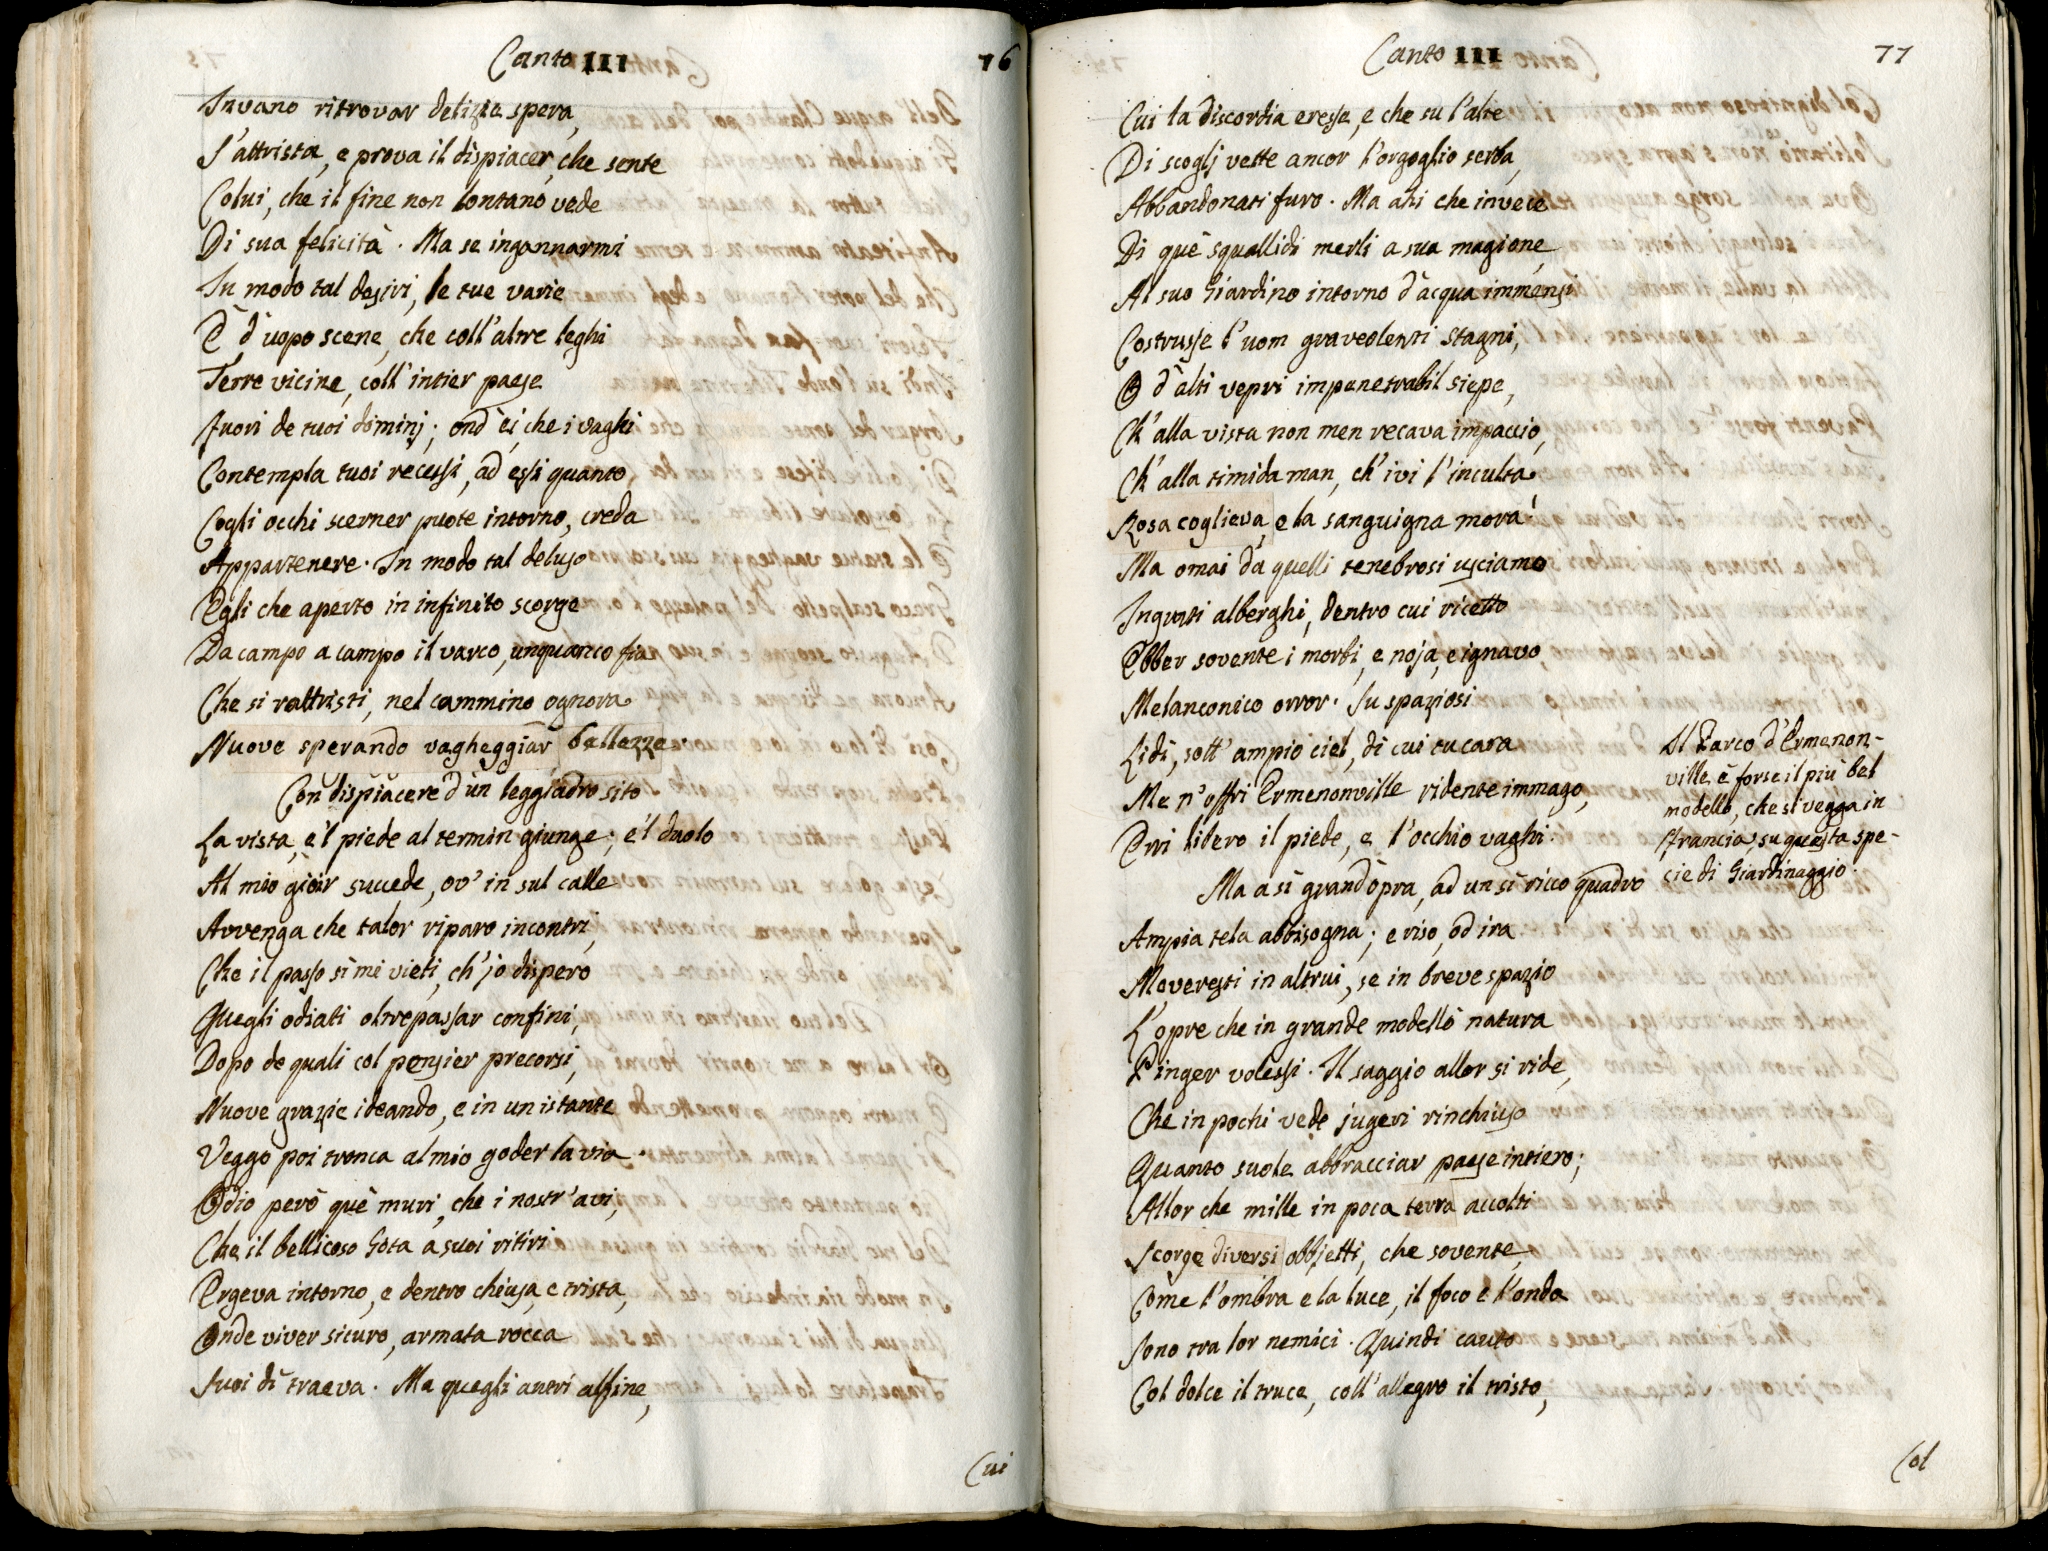 Canto III
76
Invano ritrovar delizie spera,
S'attrista, e prova il dispiacer, che sente
Colui, che il fine non lontano vede
Di sua felicità. Ma se ingannarmi
In modo tal desiri, le tue varie
È d'uopo scene, che coll'altre leghi
Terre vicine, coll'intier paese
Fuori de tuoi dominj; ond'ei, che i vaghi
Contempla tuoi recessi, ad essi quanto
Cogli occhi scerner puote intorno, creda
Appartenere. In modo tal deluso
Egli che aperto in infinito scorge
Da campo a campo il varco, unquanco fia
Che si rattristi, nel cammino ognora
Nuove sperando vagheggiar bellezze.
Con dispiacere d'un leggiadro sito
La vista, e'l piede al termin giunge; e'l duolo
Al mio gioir succede, ov' in sul calle
Avvenga che talor riparo incontri,
Che il passo sì mi vieti, ch'io dispero
Quegli odiati oltrepassar confini,
Dopo de quali col pensier precorsi,
Nuove grazie ideando, e in un istante
Veggo poi tronca al mio goder la via.
Odio però què muri, che i nostr'avi,
Che il bellicoso Gota a suoi ritiri
Ergeva intorno, e dentro chiusa, e trista,
Onde viver sicuro, armata rocca
Suoi dì traeva. Ma quegli antri alfine,
Cui
Canto III
77
Cui la discordia eresse, e che su l'alte
Di scoglj vette ancor l'orgoglio serba,
Abbandonati furo. Ma ahi che invece
Di què squallidi merli a sua magione,
Al suo Giardino intorno d'acqua immensi
Costrusse l'uom graveolenti stagni,
O d'alti vepri impenetrabil siepe,
Ch'alla vista non men recava impaccio,
Ch'alla timida man, ch'ivi l'inculta
Rosa coglieva, e la sanguigna mora!
Ma omai da quelli tenebrosi usciamo
Ingrati alberghi, dentro cui ricetto
Ebber sovente i morbi, e noja, e ignavo,
Melanconico orror. Su spaziosi
Lidi, sott'ampio ciel, di cui tu cara
Me n'offri Ermenonville ridente immago,
Erri libero il piede, e l'occhio vaghi.
Il Parco d'Ermenon-
ville, è forse il più bel
modello, che si vegga in
Francia, su questa spe-
cie di Giardinaggio.
Ma a sì grand'opra, ad un sì ricco quadro
Ampia tela abbisogna; e riso, od ira
Moveresti in altrui, se in breve spazio
L'opre che in grande modellò natura
Pinger volessi. Il saggio allor si ride,
Che in pochi vede jugeri rinchiuso
Quanto suole abbracciar paese intiero;
Allor che mille in poca terra accolti
Scorge diversi obbjetti, che sovente,
Come l'ombra e la luce, il foco e l'onda
Sono tra lor nemici. Quindi cauto
Col dolce il truce, coll'allegro il tristo,
Col